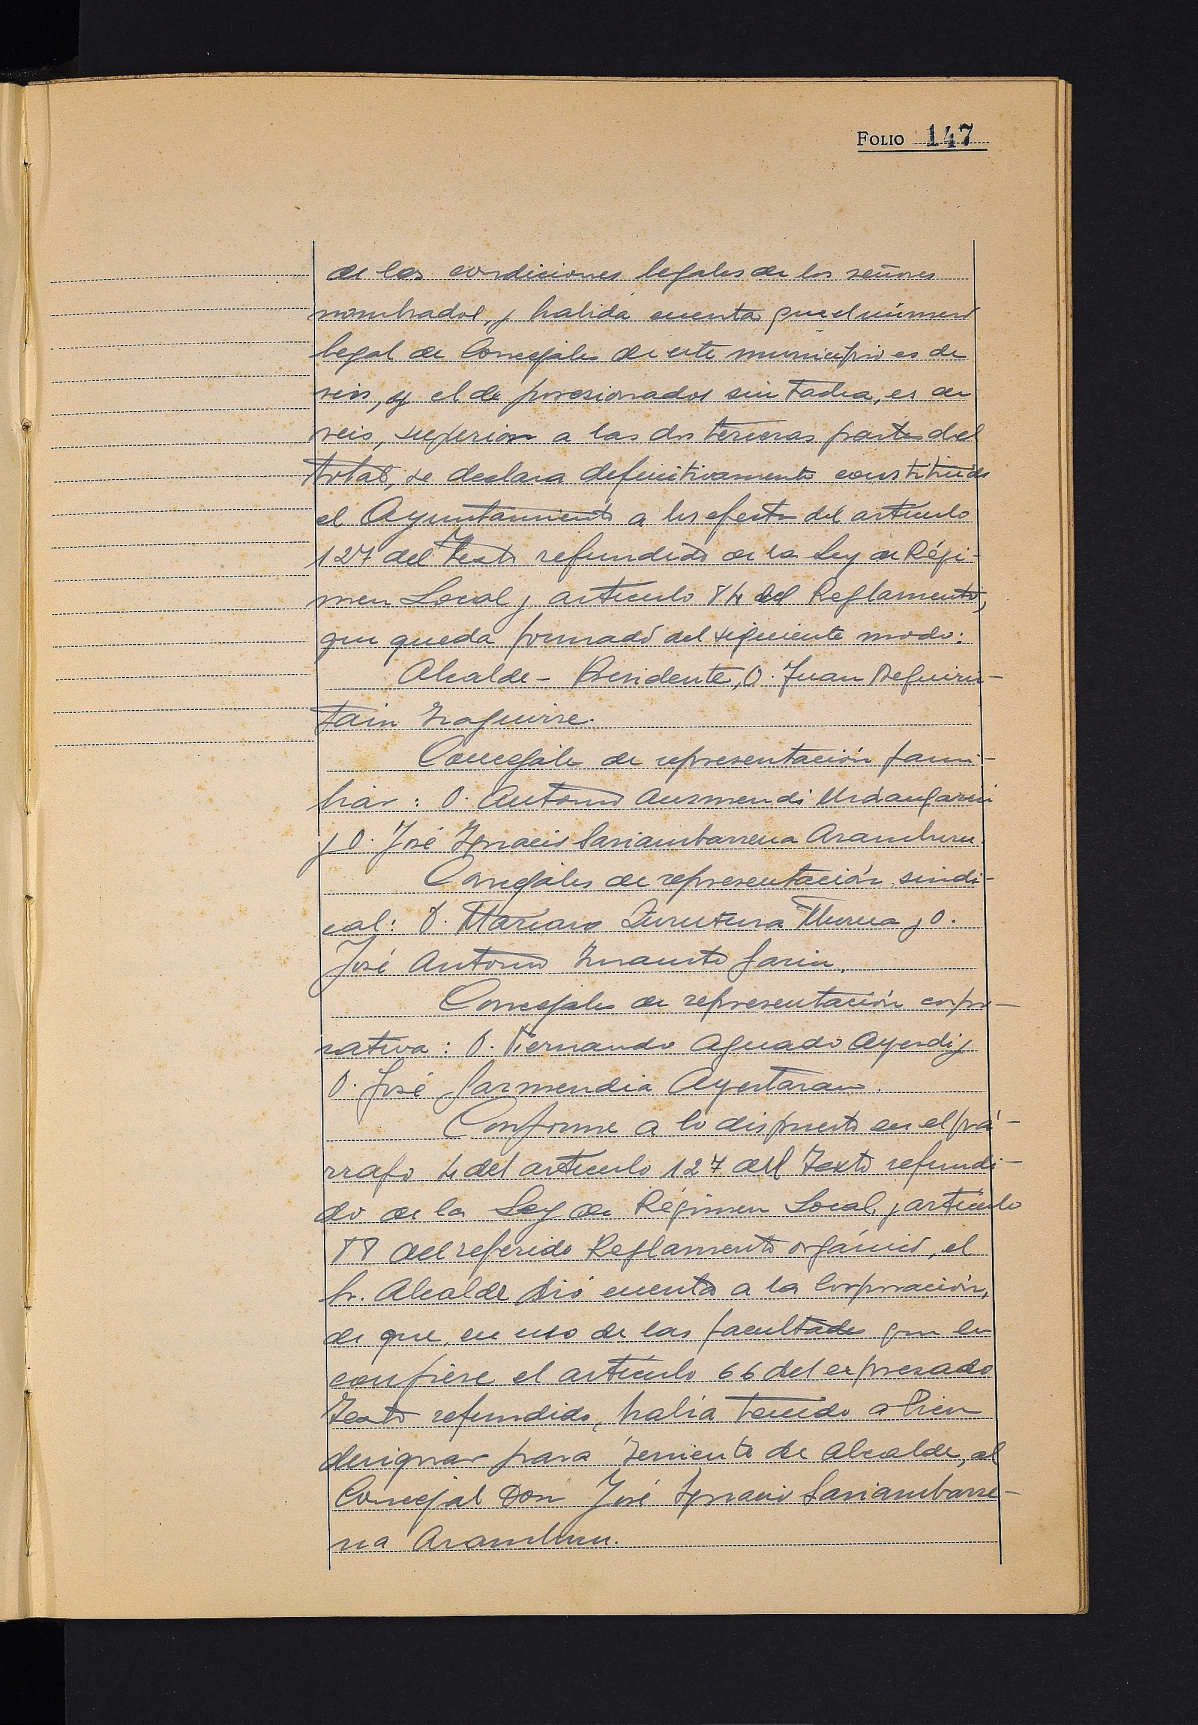 FOLIO 147
de las condiciones legales de los señores
nombrados, y habida cuenta que el número
legal de Concejales de este municipio es de
seis, y el de posesionados sin tacha, es de
seis, superior a las dos terceras partes del
total, se declara definitivamente constituido
el Ayuntamiento a los efectos del artículo
127 del Texto refundido de la Ley de Régi-
men Local y artículo 84 del Reglamento,
que queda formado del siguiente modo:
Alcalde - Presidente, D. Juan
Concejales de representación fami-
liar: D. Antonio Auzmendi Urdangarin
y D. José Ignacio Sariambarrena Aramburu.
Concejales de representación sindi-
cal: D. Mariano y D.
José Antonio Garin.
Concejales de representación corpo-
rativa: D. Fernando Aguado Ayerdi y
D. José Garmendia Ayestaran.
Conforme a lo dispuesto en el pá-
rrafo 4 del artículo 127 del Texto refundi-
do de la Ley de Régimen Local, y artículo
88 del referido Reglamento orgánico, el
Sr. Alcalde dió cuenta a la Corporación,
de que, en uso de las facultades que le
confiere el artículo 66 del expresado
Texto refundido, había tenido a bien
designar para Teniente de Alcalde, al
Concejal Don José Ignacio Sariambarre-
na Aramburu.